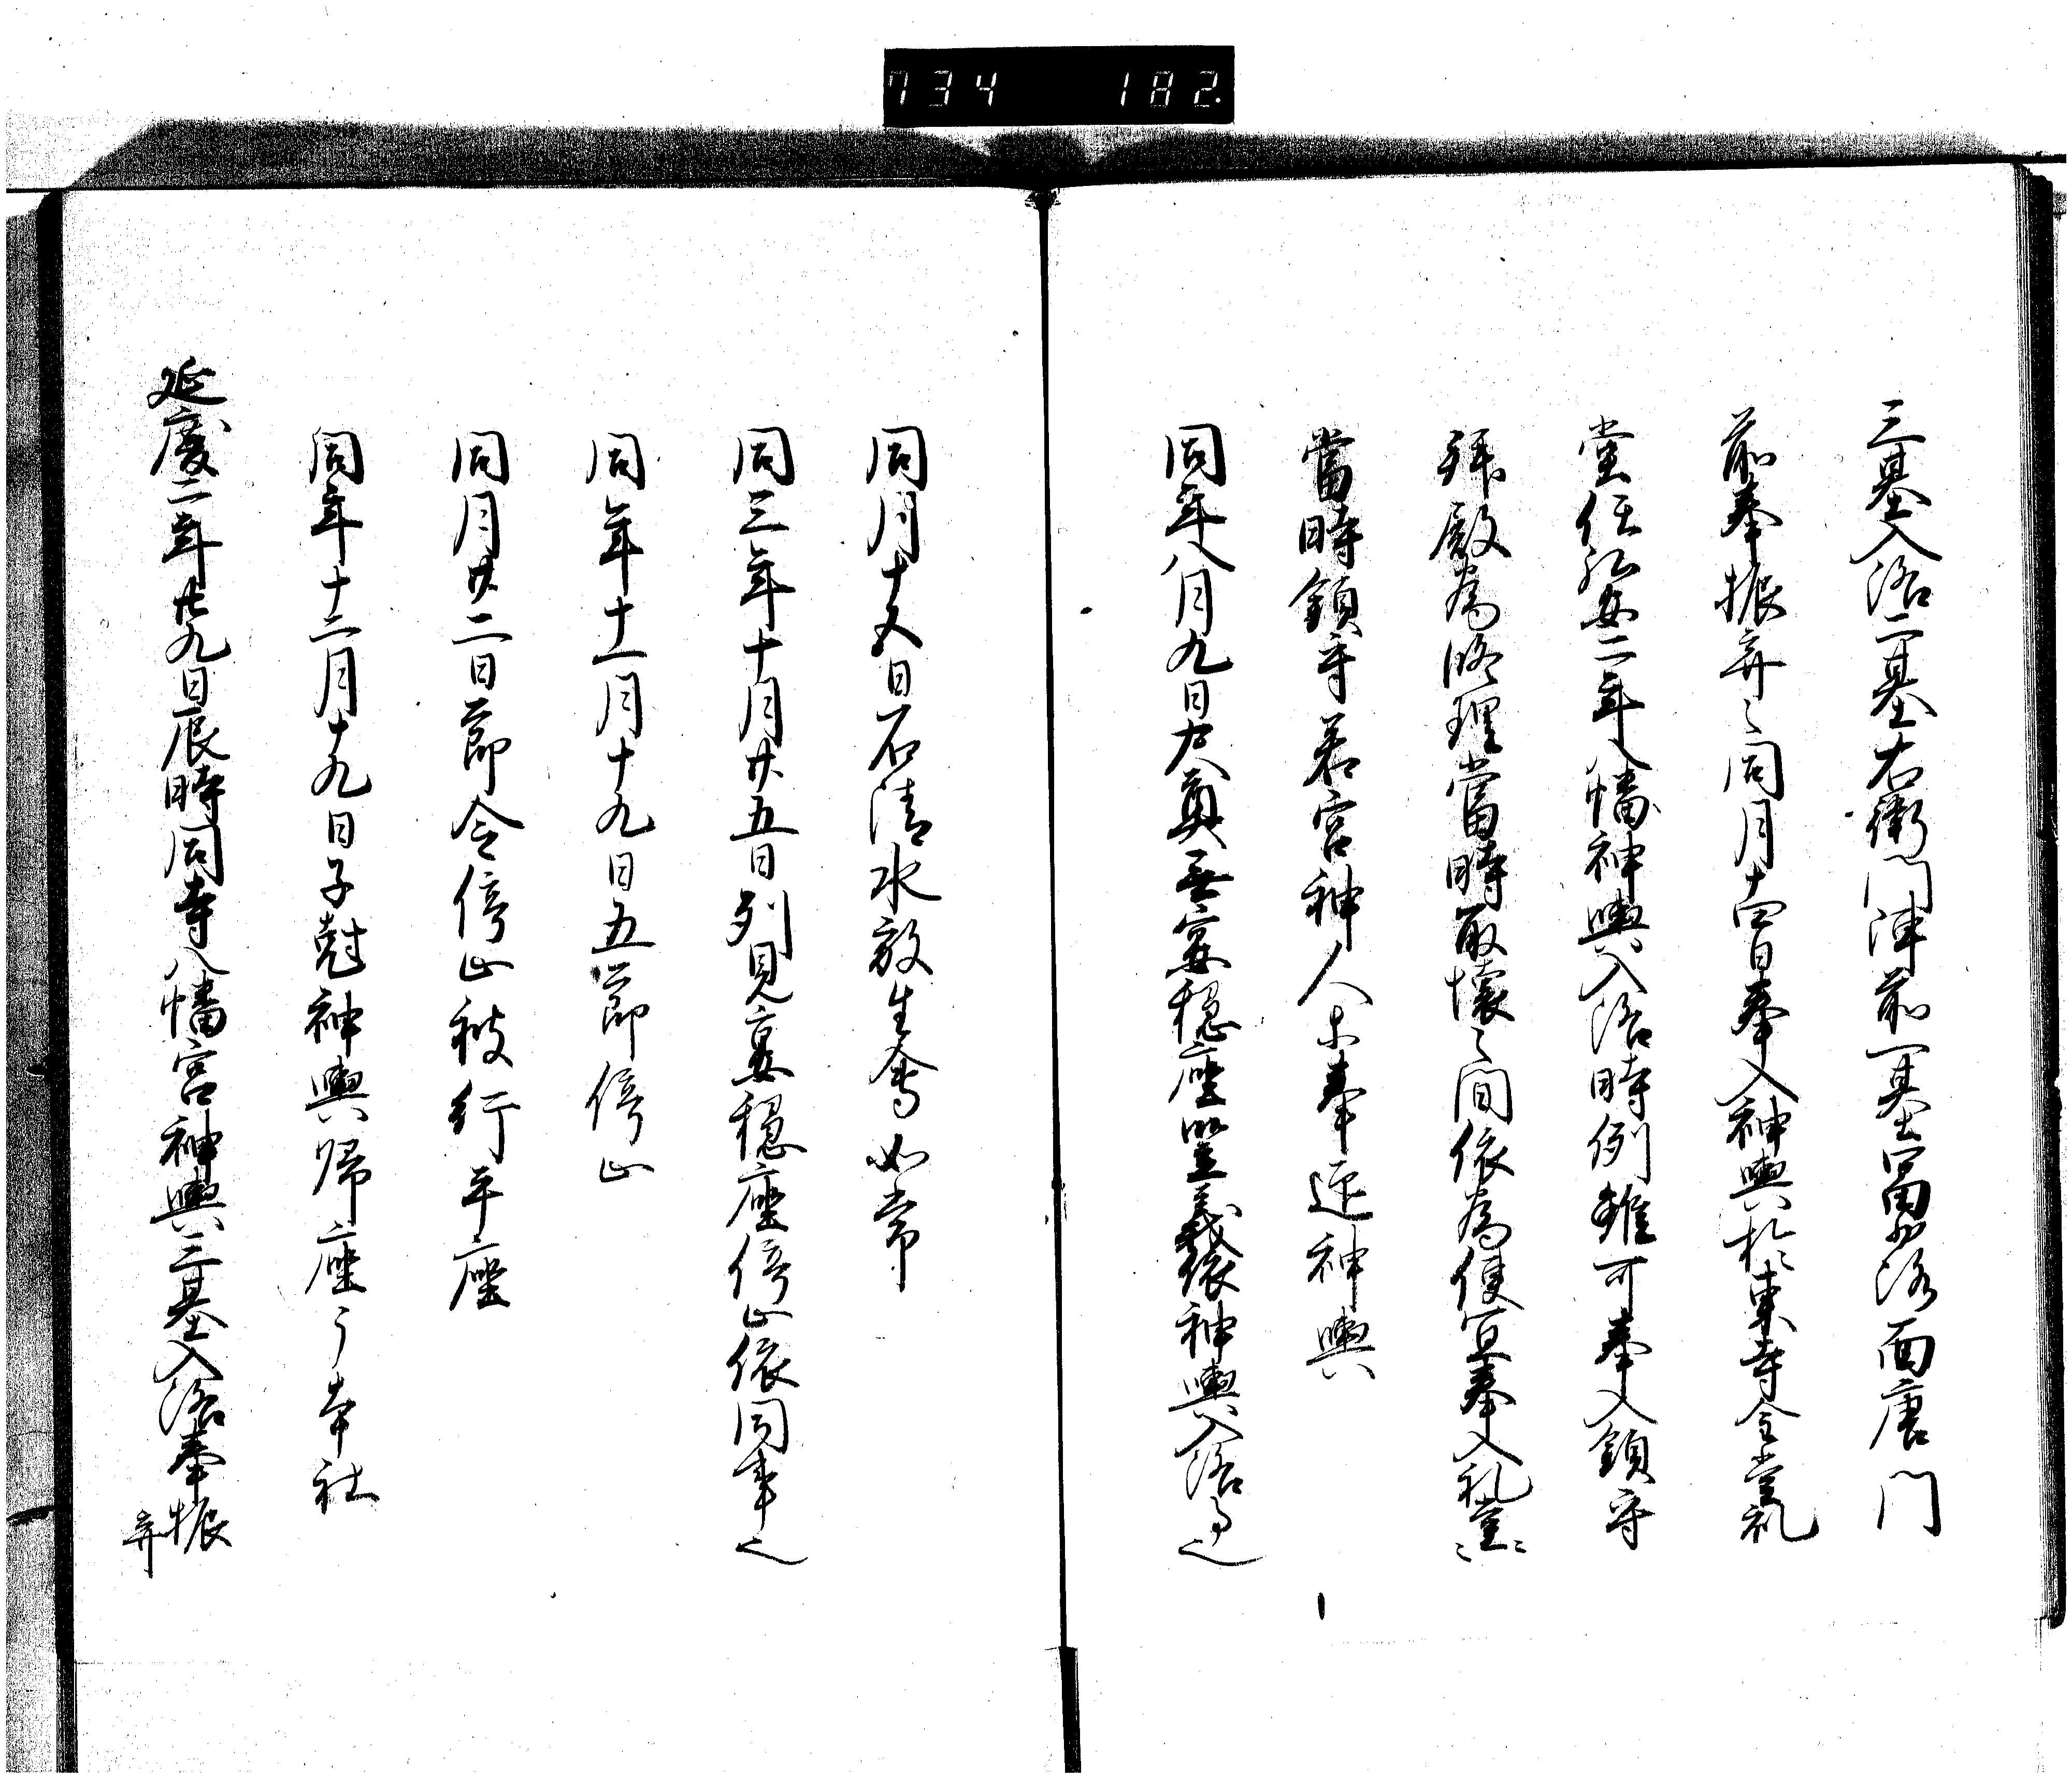 734 182.
三基入洛二基右衛門陣前一基冨小路面唐門
前奉振弃之同月十四日奉入神輿於東寺金堂礼
堂任弘安二年八幡神輿入洛時例雖可奉入鎮守
拝殿為修理當時取壊之間依為便宜奉入礼堂云々
當時鎮守若宮神人等奉迎神輿
同年八月九日尺奠無宴穏座竪義依神輿入洛事也
同月十五日石清水放生會如常
同三年十月廿五日列見宴穏座停止依同事也
同年十一月十九日五節停止
同月廿二日節会停止被行平座
同年十二月十九日子尅神輿帰座之本社
延慶二年廿九日辰時同寺八幡宮神輿三基入洛奉振弃